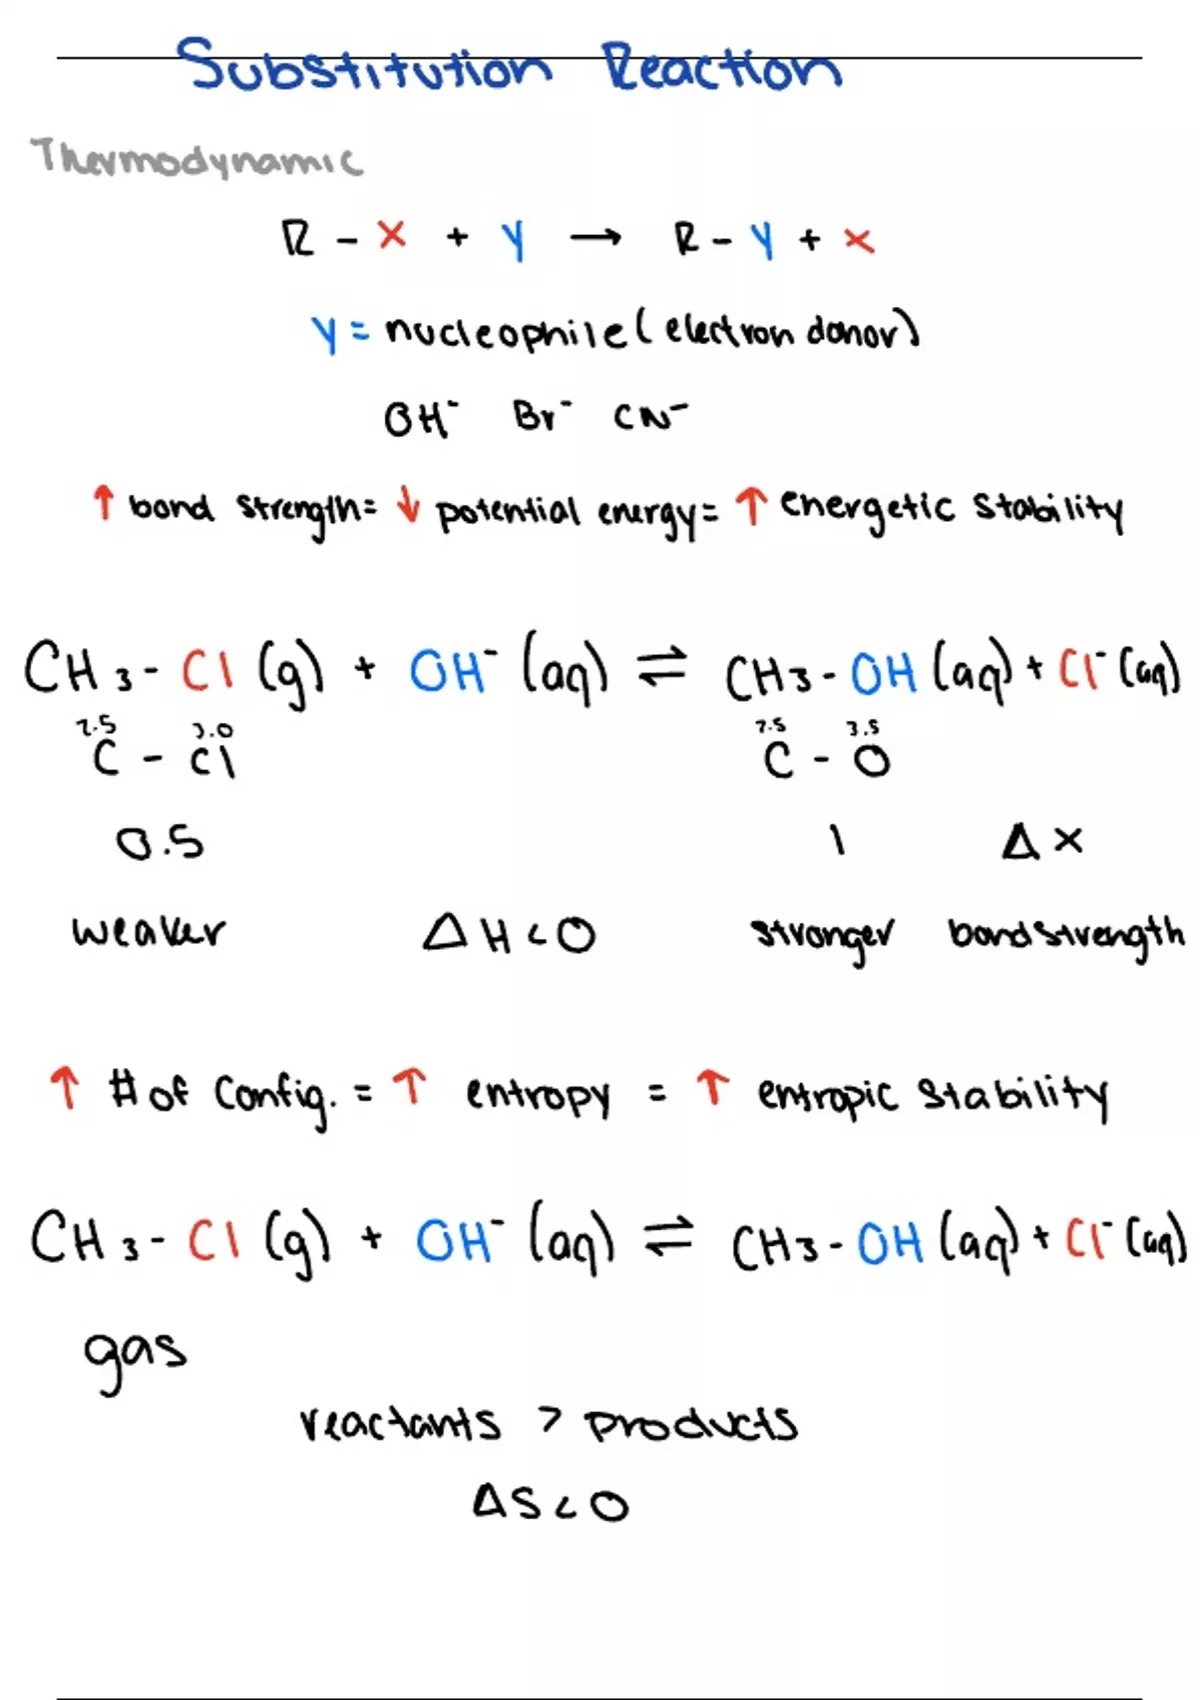 Substitution Reaction
Thermodynamic
R - X + Y → R - Y + X
Y = nucleophile (electron donor)
OH⁻ Br⁻ CN⁻
↑ bond strength = ↓ potential energy = ↑ energetic stability
CH₃ - Cl (g) + OH⁻ (aq) ⇌ CH₃ - OH (aq) + Cl⁻ (aq)
2.5 3.0 2.5 3.5
C - Cl C - O
0.5 1 Δ X
weaker ΔH < O stronger bond strength
↑ # of config. = ↑ entropy = ↑ entropic stability
CH₃ - Cl (g) + OH⁻ (aq) ⇌ CH₃ - OH (aq) + Cl⁻ (aq)
gas
reactants > products
ΔS < O